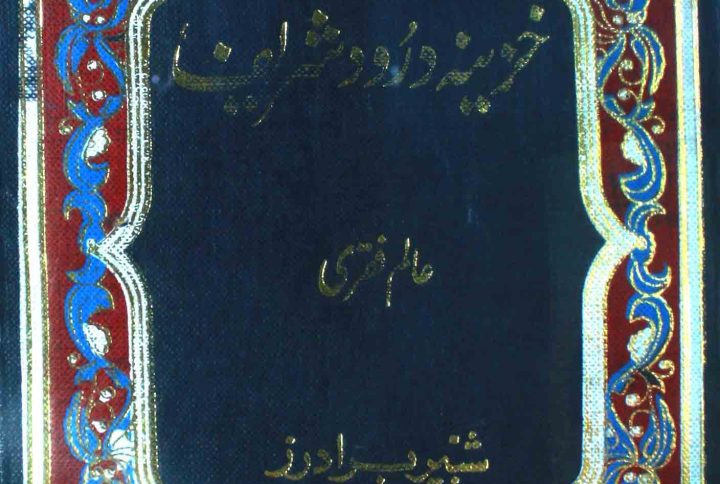 خزینہ درود شریف
عالم فقری
شبیر برادرز